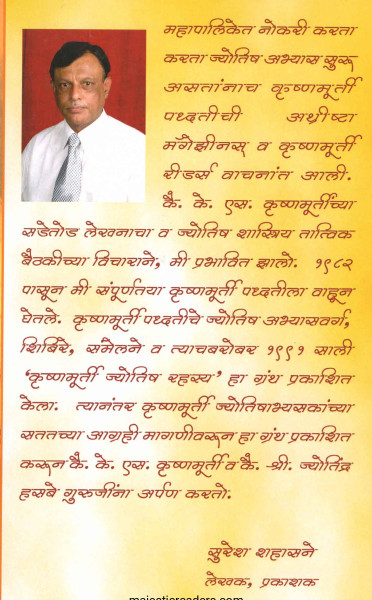 महापालिकेत नोकरी करता
करता ज्योतिष अभ्यास सुरू
असतांनाच कृष्णमूर्ती
पध्दतीची अथ्रीष्टा
मॅगेझीनस् व कृष्णमूर्ती
रीडर्स वाचनांत आली.
कै. के. एस. कृष्णमूर्तींच्या
सडेतोड लेखनाचा व ज्योतिष शास्त्रिय तात्विक
बैठकीच्या विचाराने, मी प्रभावित झालो. १९८२
पासून मी संपूर्णतया कृष्णमूर्ती पध्दतीला वाहून
घेतले. कृष्णमूर्ती पध्दतीचे ज्योतिष अभ्यासवर्ग,
शिबिरे, संमेलने व त्याचबरोबर १९९१ साली
'कृष्णमूर्ती ज्योतिष रहस्य' हा ग्रंथ प्रकाशित
केला. त्यानंतर कृष्णमूर्ती ज्योतिषाभ्यसकांच्या
सततच्या आग्रही मागणीवरून हा ग्रंथ प्रकाशित
करून कै. के. एस. कृष्णमूर्ती व कै. श्री. ज्योतिंद्र
हसबे गुरुजींना अर्पण करतो.
सुरेश शहासने
लेखक, प्रकाशक
majesticreaders.com